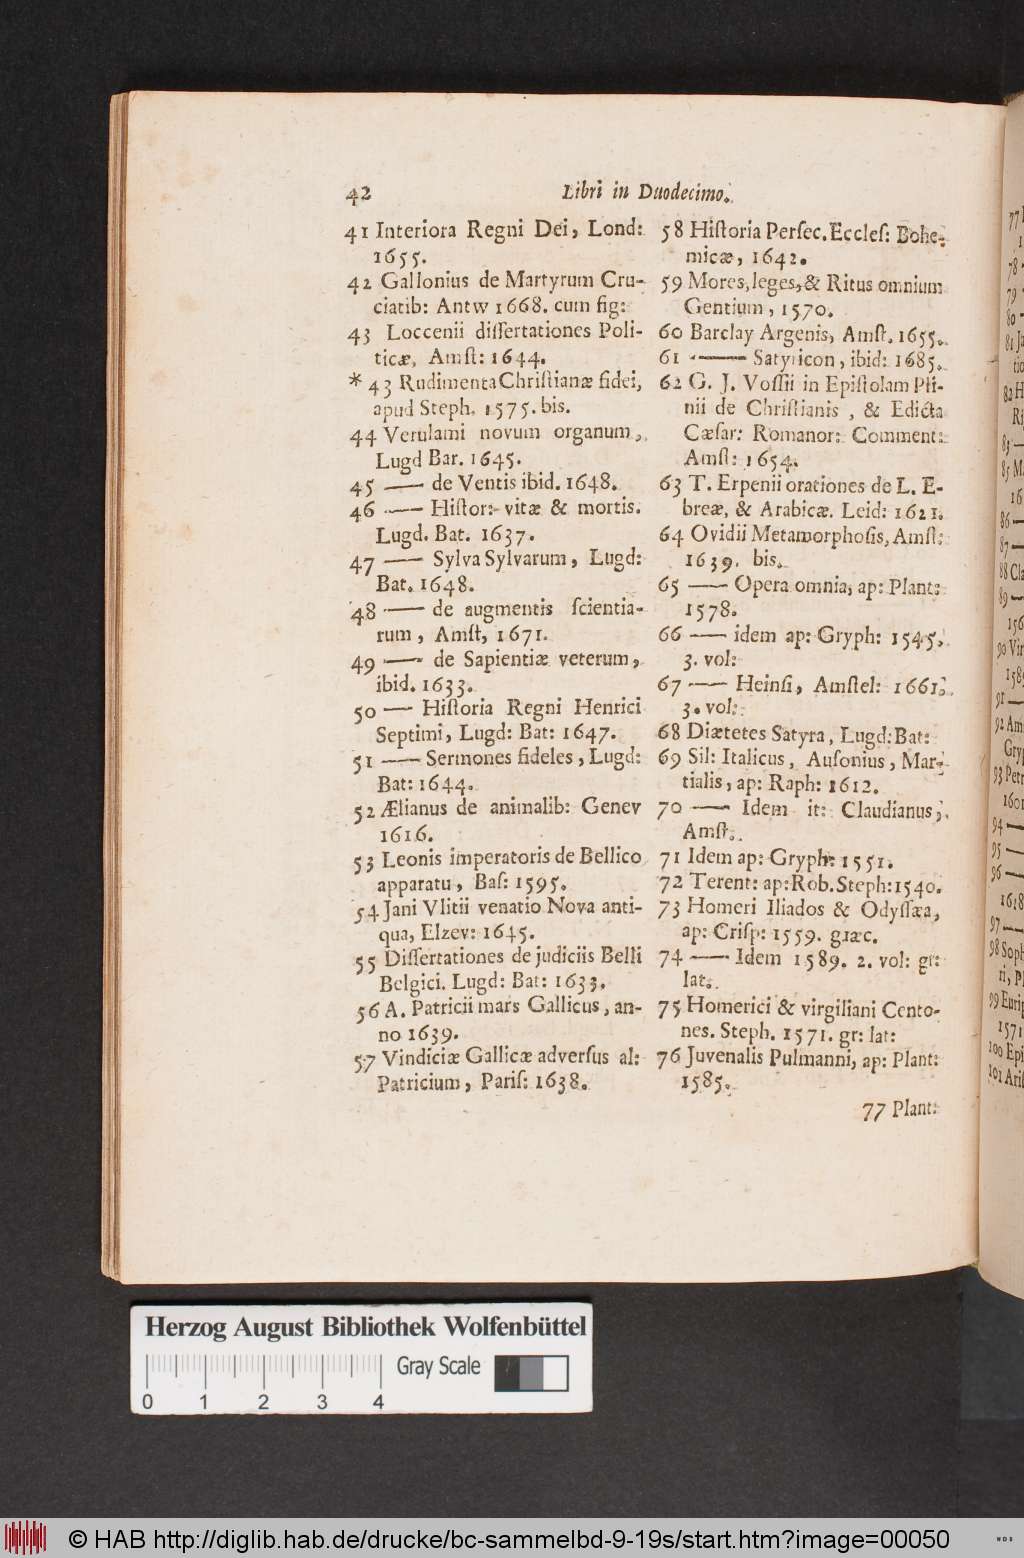 42
Libri in Duodecimo.
41 Interiora Regni Dei, Lond:
1655.
42 Gallonius de Martyrum Cru-
ciatib: Antw 1668. cum fig:
43 Loccenii diſſertationes Poli-
ticæ, Amſt: 1644.
* 43 Rudimenta Chriſtianæ fidei,
apud Steph. 1575. bis.
44 Verulami novum organum,
Lugd Bar. 1645.
45 —— de Ventis ibid. 1648.
46 —— Hiſtor: vitæ & mortis.
Lugd. Bat. 1637.
47 —— Sylva Sylvarum, Lugd:
Bat. 1648.
48 —— de augmentis ſcientia-
rum, Amſt, 1671.
49 —— de Sapientiæ veterum,
ibid. 1633.
50 —— Hiſtoria Regni Henrici
Septimi, Lugd: Bat: 1647.
51 —— Sermones fideles, Lugd:
Bat: 1644.
52 Ælianus de animalib: Genev
1616.
53 Leonis imperatoris de Bellico
apparatu, Baſ: 1595.
54 Jani Vlitii venatio Nova anti-
qua, Elzev: 1645.
55 Diſſertationes de judiciis Belli
Belgici. Lugd: Bat: 1633.
56 A. Patricii mars Gallicus, an-
no 1639.
57 Vindiciæ Gallicæ adverſus al:
Patricium, Pariſ: 1638.
58 Hiſtoria Perſec. Eccleſ: Bohe-
micæ, 1642.
59 Mores, leges, & Ritus omnium
Gentium, 1570.
60 Barclay Argenis, Amſt. 1655.
61 —— Satyricon, ibid: 1685.
62 G. J. Voſſii in Epiſtolam Pli-
nii de Chriſtianis, & Edicta
Cæſar: Romanor: Comment:
Amſt: 1654.
63 T. Erpenii orationes de L. E-
breæ, & Arabicæ. Leid: 1621.
64 Ovidii Metamorphoſis, Amſt:
1639. bis.
65 —— Opera omnia, ap: Plant:
1578.
66 —— idem ap: Gryph: 1545.
3. vol:
67 —— Heinſi, Amſtel: 1661.
3. vol:
68 Diætetes Satyra, Lugd: Bat:
69 Sil: Italicus, Auſonius, Mar-
tialis, ap: Raph: 1612.
70 —— Idem it: Claudianus,
Amſt.
71 Idem ap: Gryph: 1551.
72 Terent: ap: Rob. Steph: 1540.
73 Homeri Iliados & Odyſſæa,
ap: Criſp: 1559. græc.
74 —— Idem 1589. 2. vol: gr:
lat.
75 Homerici & virgiliani Cento-
nes. Steph. 1571. gr: lat:
76 Juvenalis Pulmanni, ap: Plant:
1585.
77 Plant:
Herzog August Bibliothek Wolfenbüttel
Gray Scale
0 1 2 3 4
© HAB http://diglib.hab.de/drucke/bc-sammelbd-9-19s/start.htm?image=00050